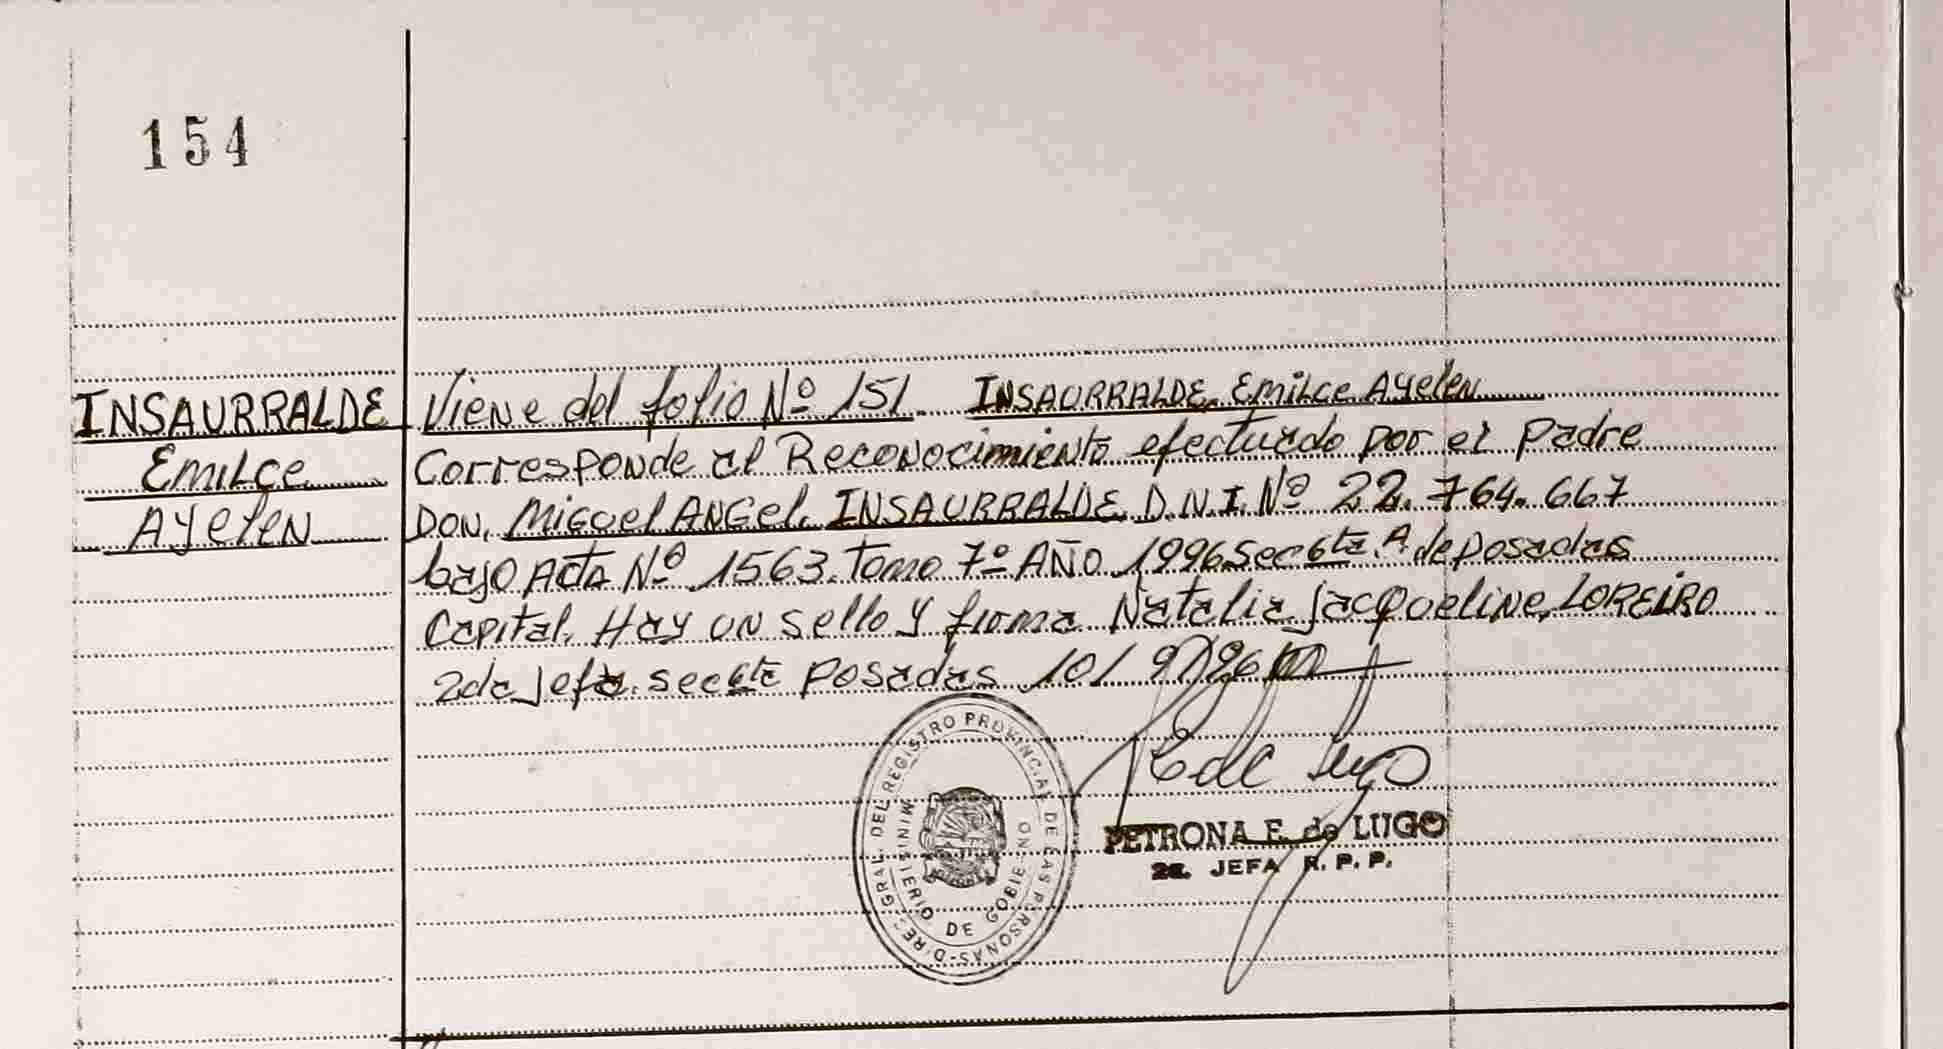 154
INSAURRALDE
Emilce
Ayelen
Viene del folio Nº 151. INSAURRALDE, Emilce Ayelen
Corresponde al Reconocimiento efectuado por el padre
DON, Miguel ANGel, INSAURRALDE D.N.I. Nº 22.764.667
bajo Acta Nº 1563. Tomo 7º AÑO 1996. Secc 6ta. A. de posadas
Capital. Hay un sello y firma Natalia Jacqueline, LOREIRO
2da Jefa. secc 6ta Posadas 10/ 9/96
REGISTRO PROVINCIAL DE LAS PERSONAS
GRAL. DEL
MINISTERIO DE GOBIERNO
PETRONA E. de LUGO
2a. JEFA R. P. P.